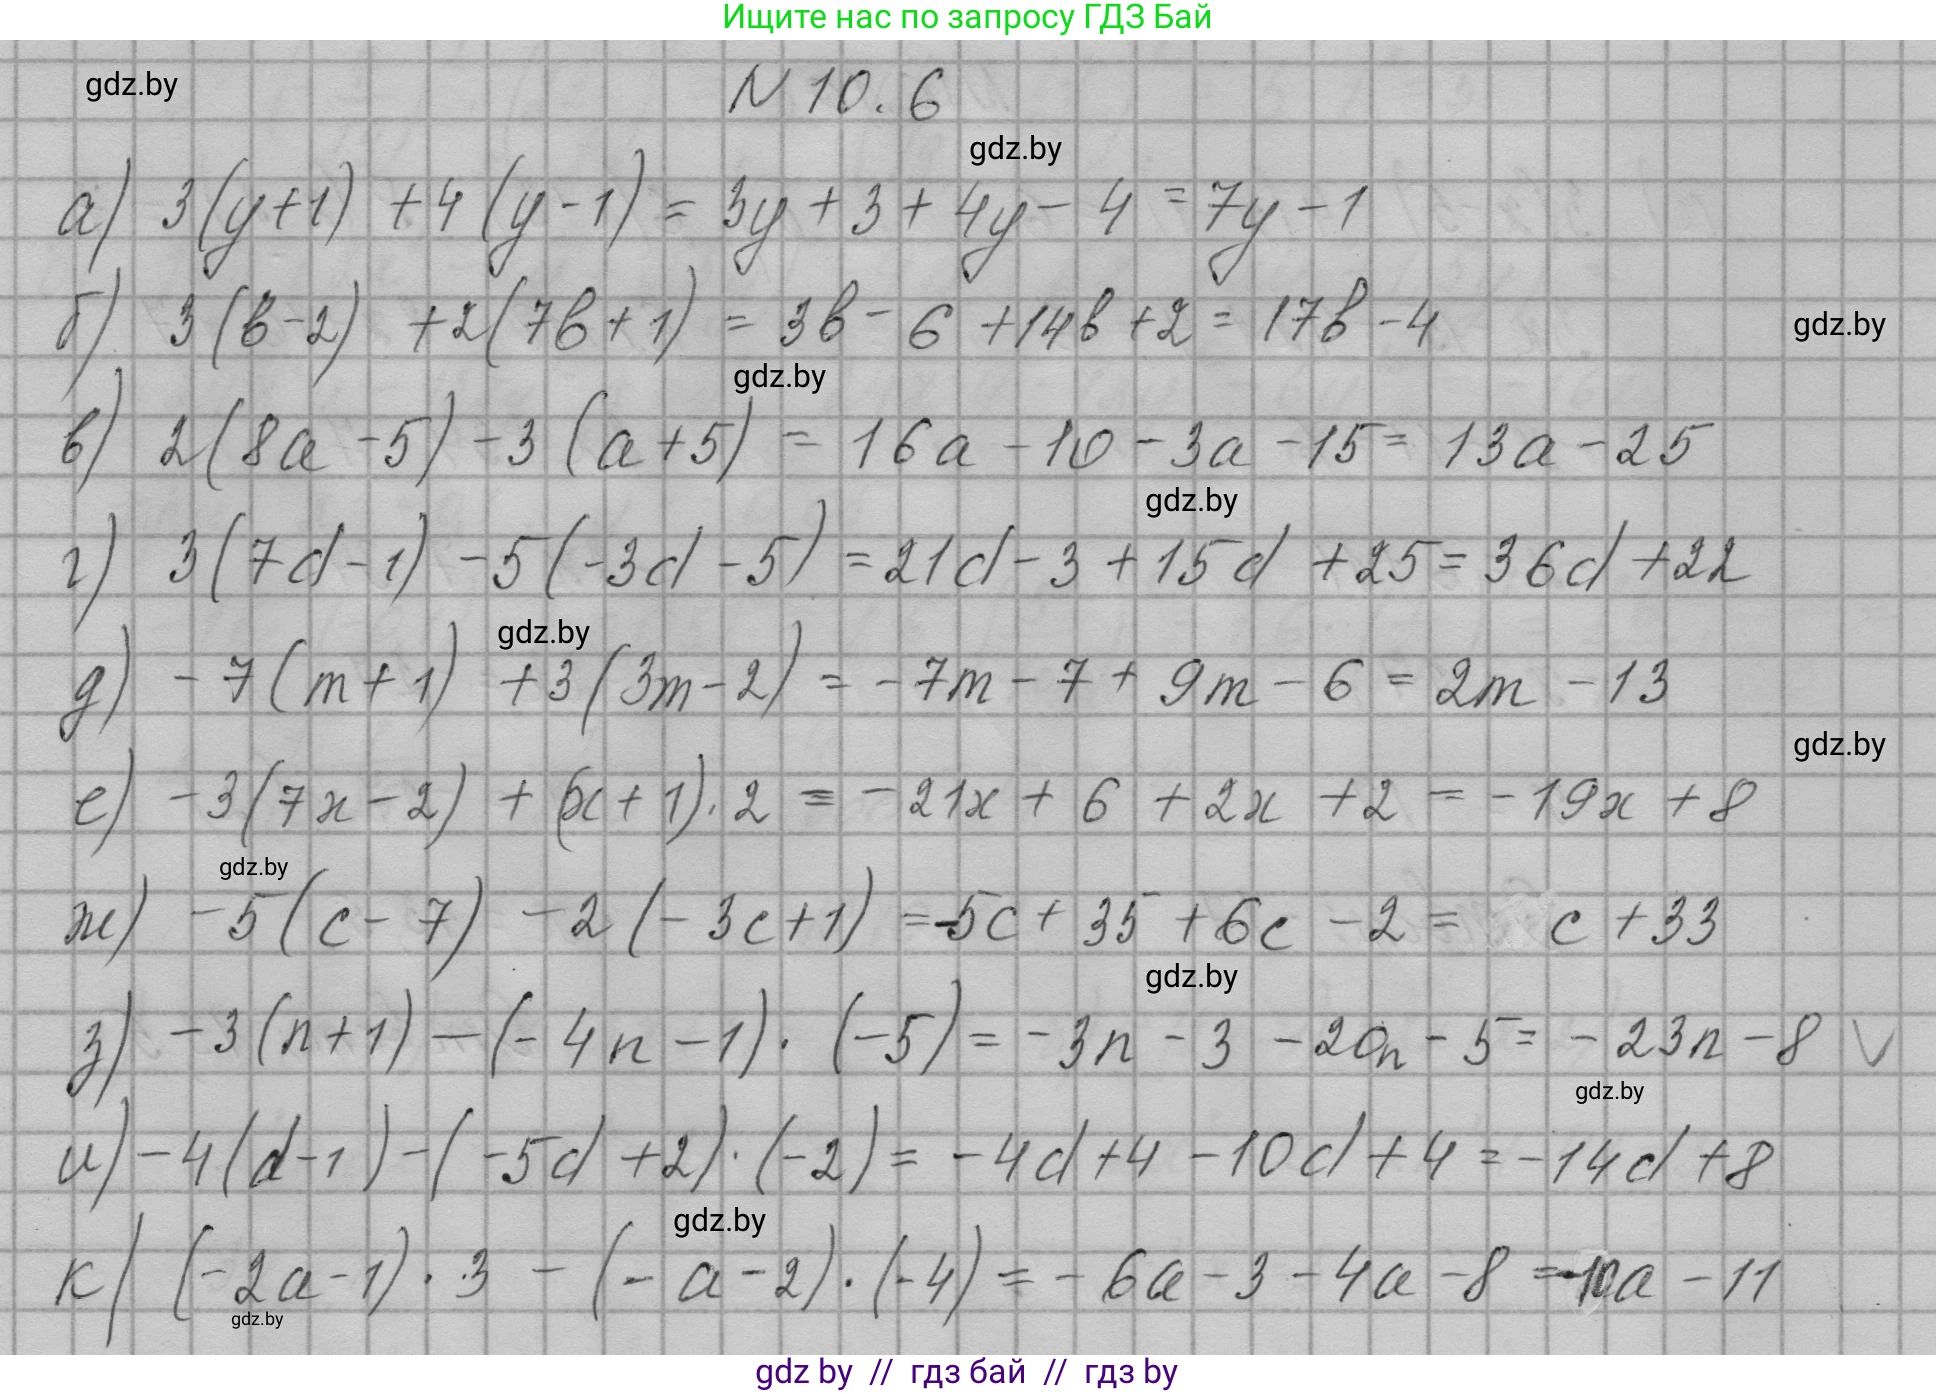 Ищите нас по запросу ГДЗ Бай
gdz.by
N 10.6
gdz.by
а) 3(y+1) +4(y-1) = 3y + 3 + 4y - 4 = 7y - 1
б) 3(b-2) +2(7b+1) = 3b - 6 +14b +2 = 17b -4
gdz.by
gdz.by
в) 2(8a -5) -3(a+5) = 16a -10 -3a -15 = 13a -25
gdz.by
г) 3(7d-1) -5(-3d -5) = 21d -3 +15d +25 = 36d +22
gdz.by
д) -7(m+1) +3(3m-2) = -7m -7 + 9m -6 = 2m -13
gdz.by
е) -3(7x-2) + (x+1)·2 = -21x + 6 + 2x + 2 = -19x + 8
gdz.by
ж) -5(c-7) -2(-3c+1) = -5c + 35 + 6c -2 = c + 33
gdz.by
з) -3(n+1) -(-4n -1)·(-5) = -3n -3 -20n -5 = -23n -8 V
gdz.by
и) -4(d-1) -(-5d +2)·(-2) = -4d +4 -10d +4 = -14d +8
gdz.by
к) (-2a-1)·3 - (-a-2)·(-4) = -6a -3 -4a -8 = -10a -11
gdz.by
gdz by // гдз бай // гдз by